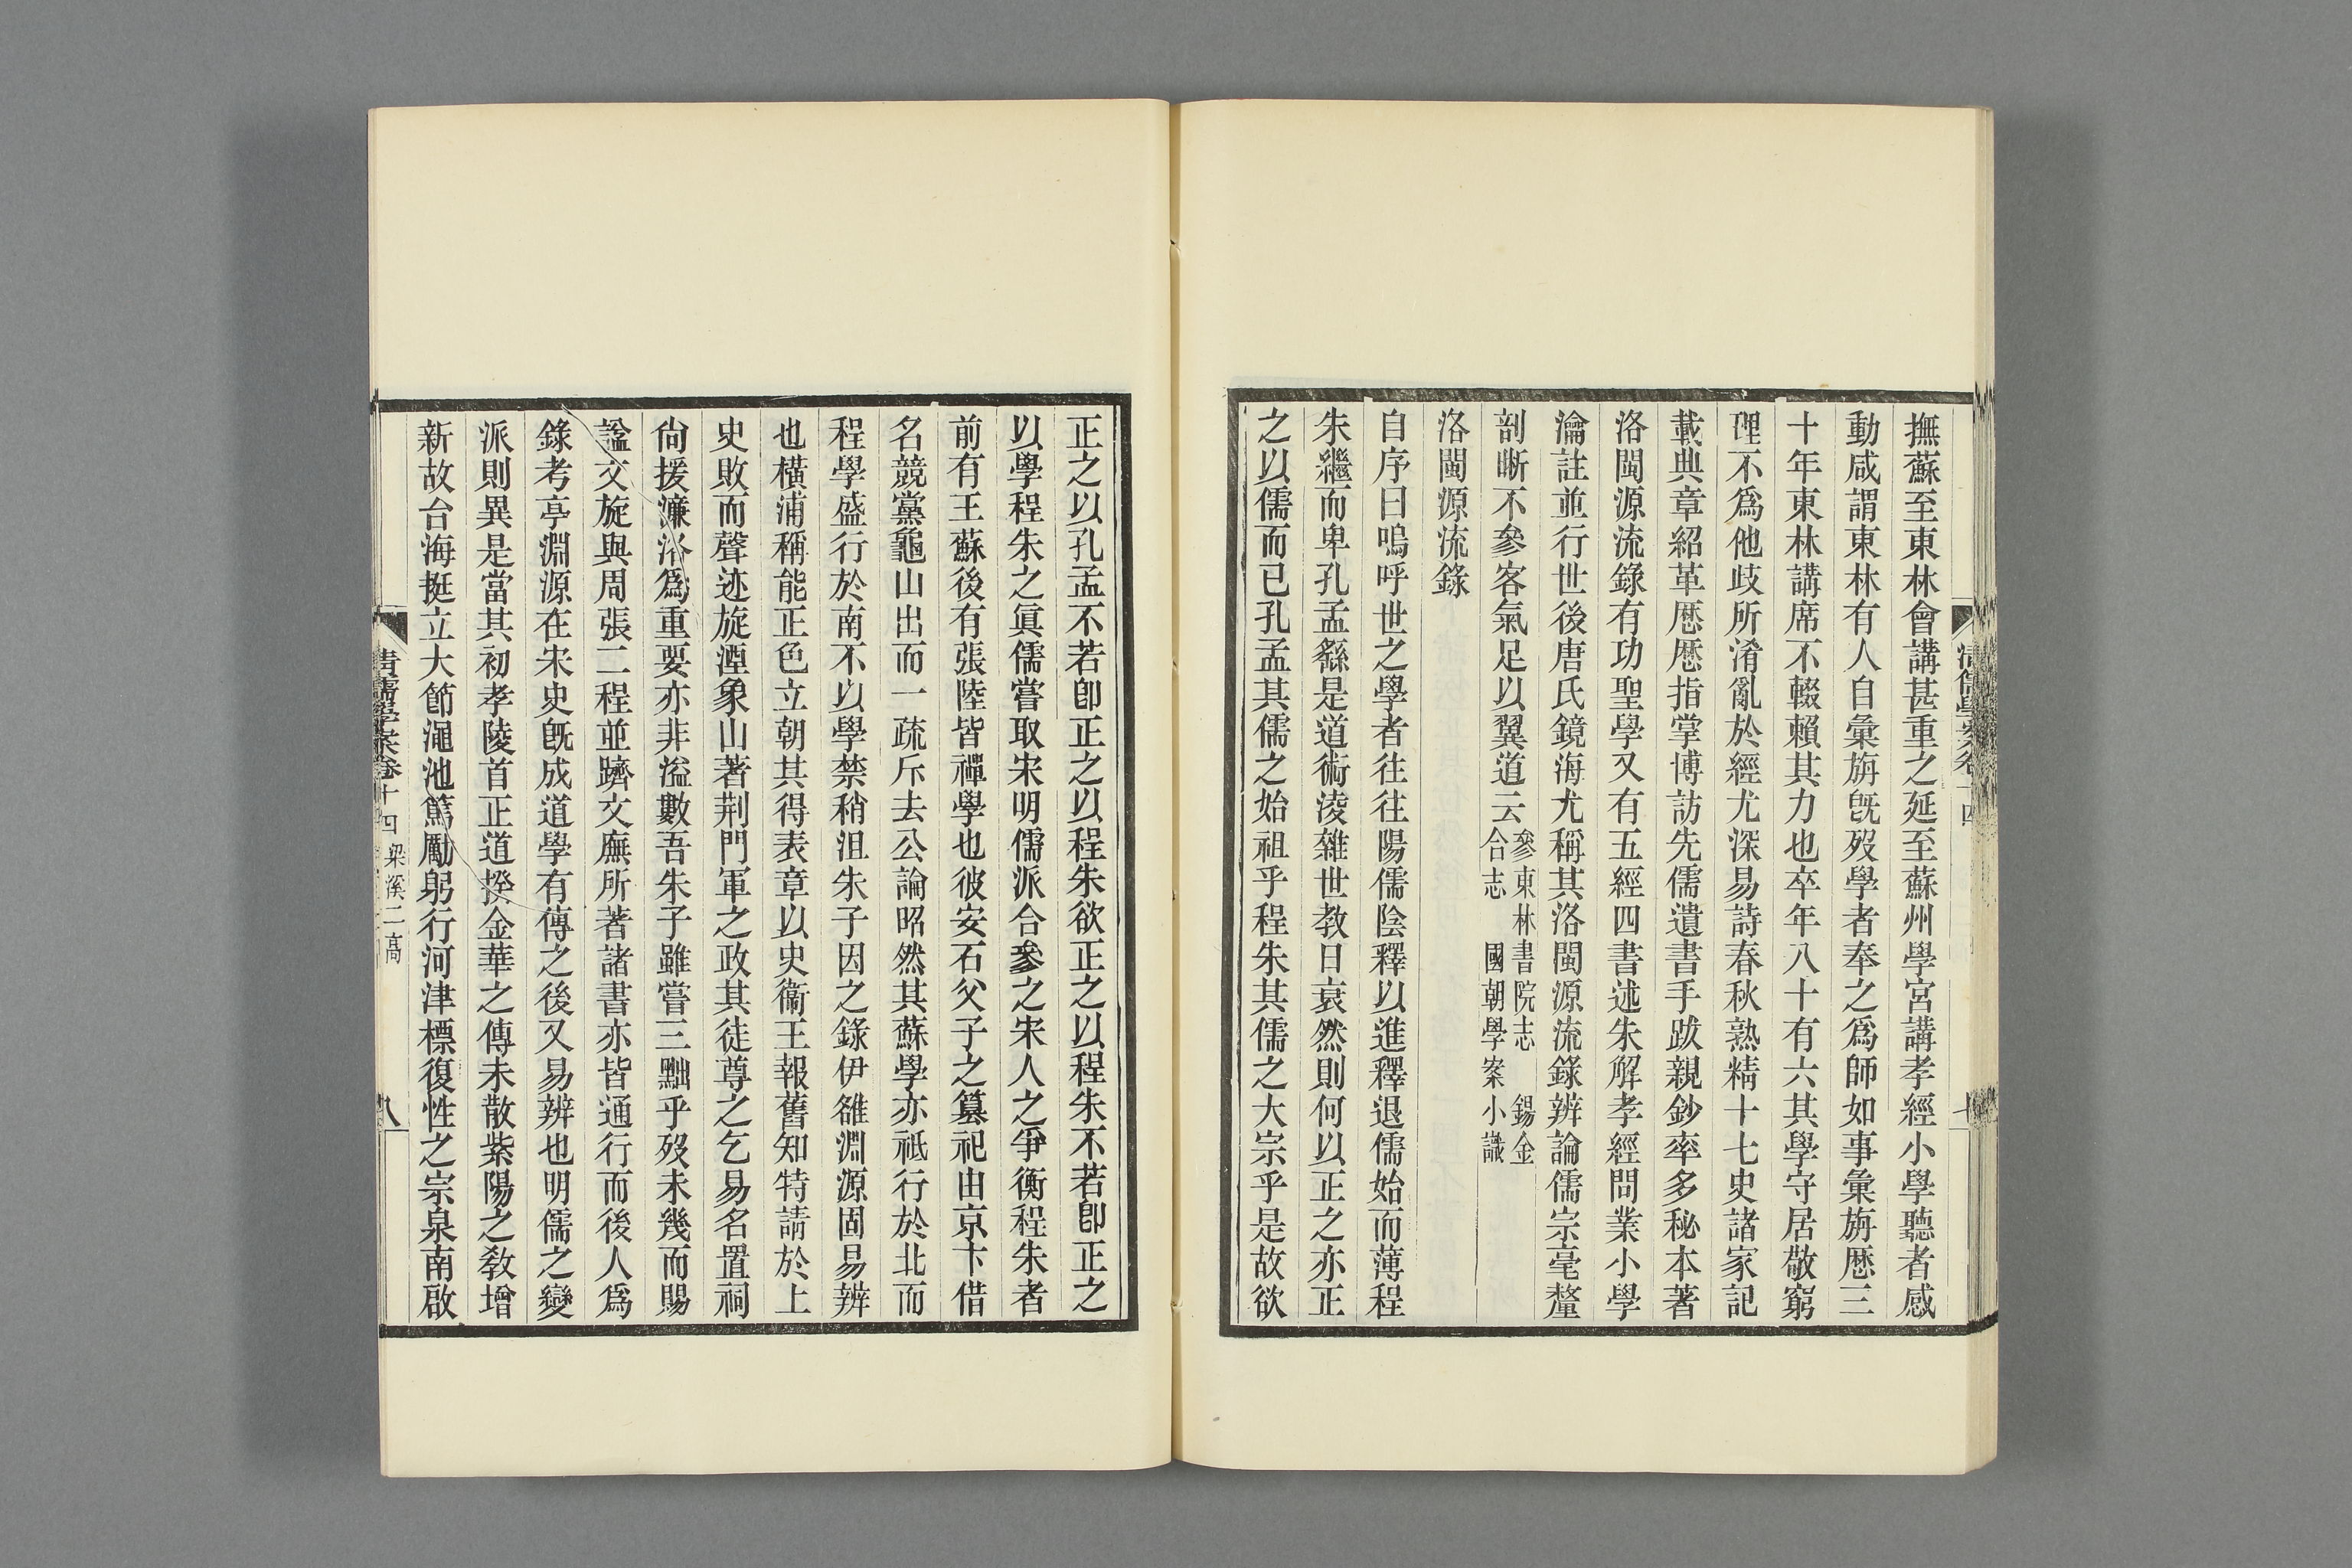 撫蘇至東林會講甚重之延至蘇州學宮講孝經小學聽者感
動咸謂東林有人自彙旃旣歿學者奉之爲師如事彙旃厯三
十年東林講席不輟賴其力也卒年八十有六其學守居敬窮
理不爲他歧所淆亂於經尤深易詩春秋熟精十七史諸家記
載典章紹革厯厯指掌博訪先儒遺書手跋親鈔率多秘本著
洛閩源流錄有功聖學又有五經四書述朱解孝經問業小學
瀹註並行世後唐氏鏡海尤稱其洛閩源流錄辨論儒宗毫釐
剖晰不參客氣足以翼道云
參東林書院志 錫金
合志 國朝學案小識
洛閩源流錄
自序曰嗚呼世之學者往往陽儒陰釋以進釋退儒始而薄程
朱繼而卑孔孟繇是道術淩雜世教日衰然則何以正之亦正
之以儒而已孔孟其儒之始祖乎程朱其儒之大宗乎是故欲
正之以孔孟不若卽正之以程朱欲正之以程朱不若卽正之
以學程朱之眞儒嘗取宋明儒派合參之宋人之爭衡程朱者
前有王蘇後有張陸皆禪學也彼安石父子之篡祀由京卞借
名競黨龜山出而一疏斥去公論昭然其蘇學亦祗行於北而
程學盛行於南不以學禁稍沮朱子因之錄伊雒淵源固易辨
也橫浦稱能正色立朝其得表章以史衞王報舊知特請於上
史敗而聲迹旋湮象山著荆門軍之政其徒尊之乞易名置祠
尙援濂洛爲重要亦非溢數吾朱子雖嘗三黜乎歿未幾而賜
諡文旋與周張二程並躋文廡所著諸書亦皆通行而後人爲
錄考亭淵源在宋史旣成道學有傳之後又易辨也明儒之變
派則異是當其初孝陵首正道揆金華之傳未散紫陽之敎增
新故台海挺立大節澠池篤勵躬行河津標復性之宗泉南啟
清儒學案卷十四 梁溪二高
八